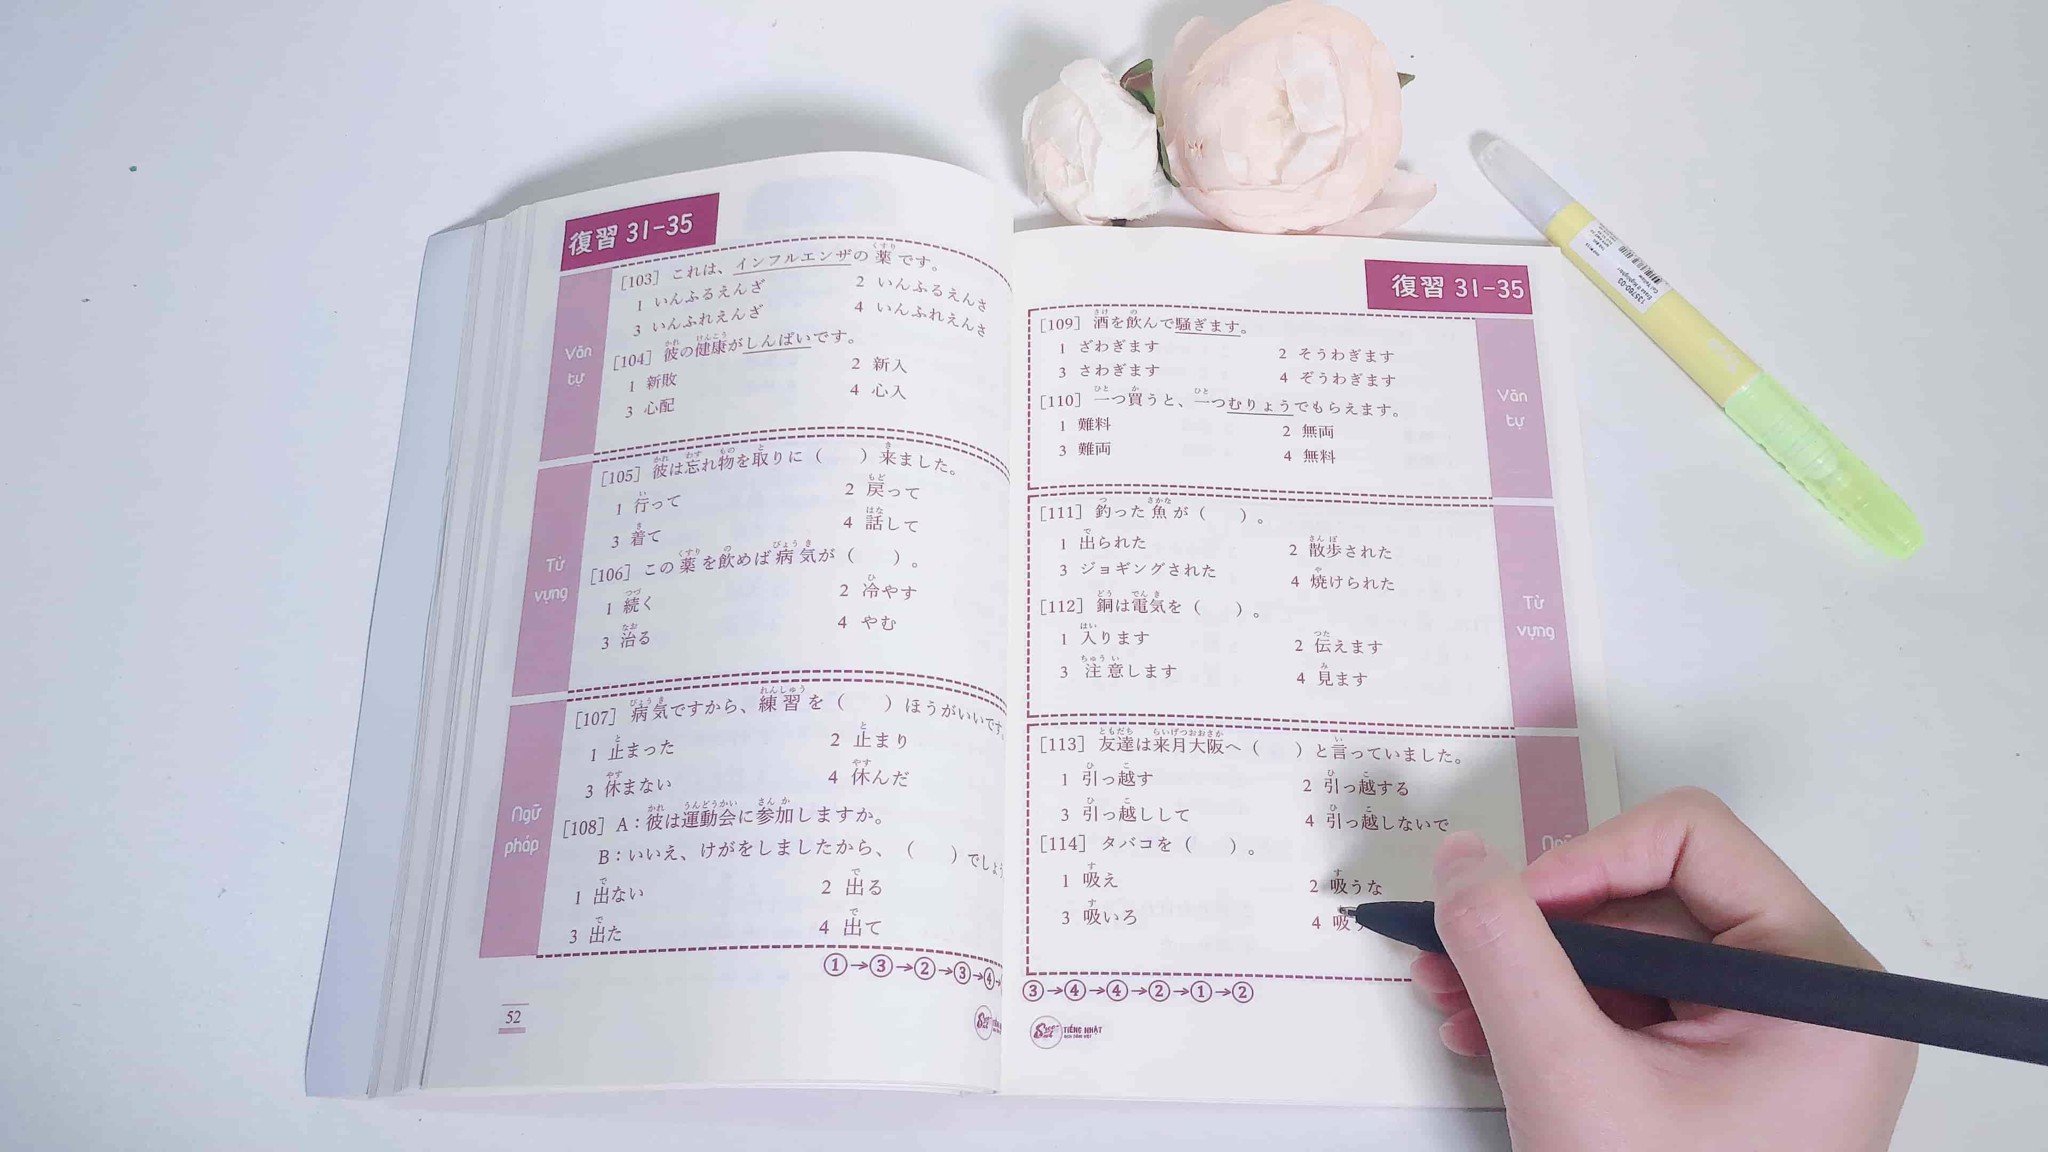 復習 31-35
Văn tự
[103] これは、インフルエンザの薬です。
1 いんふるえんざ 2 いんふるえんさ
3 いんふれえんざ 4 いんふれえんさ
[104] 彼の健康がしんぱいです。
1 新敗 2 新入
3 心配 4 心入
Từ vựng
[105] 彼は忘れ物を取りに（ ）来ました。
1 行って 2 戻って
3 着て 4 話して
[106] この薬を飲めば病気が（ ）。
1 続く 2 冷やす
3 治る 4 やむ
Ngữ pháp
[107] 病気ですから、練習を（ ）ほうがいいです。
1 止まった 2 止まり
3 休まない 4 休んだ
[108] A：彼は運動会に参加しますか。
B：いいえ、けがをしましたから、（ ）でしょ
1 出ない 2 出る
3 出た 4 出て
①→③→②→③→④→
52
復習 31-35
Văn tự
[109] 酒を飲んで騒ぎます。
1 ざわぎます 2 そうわぎます
3 さわぎます 4 ぞうわぎます
[110] 一つ買うと、一つむりょうでもらえます。
1 難料 2 無両
3 難両 4 無料
Từ vựng
[111] 釣った魚が（ ）。
1 出られた 2 散歩された
3 ジョギングされた 4 焼けられた
[112] 銅は電気を（ ）。
1 入ります 2 伝えます
3 注意します 4 見ます
[113] 友達は来月大阪へ（ ）と言っていました。
1 引っ越す 2 引っ越する
3 引っ越しして 4 引っ越しないで
[114] タバコを（ ）。
1 吸え 2 吸うな
3 吸いろ 4 吸
③→④→④→②→①→②
TIẾNG NHẬT